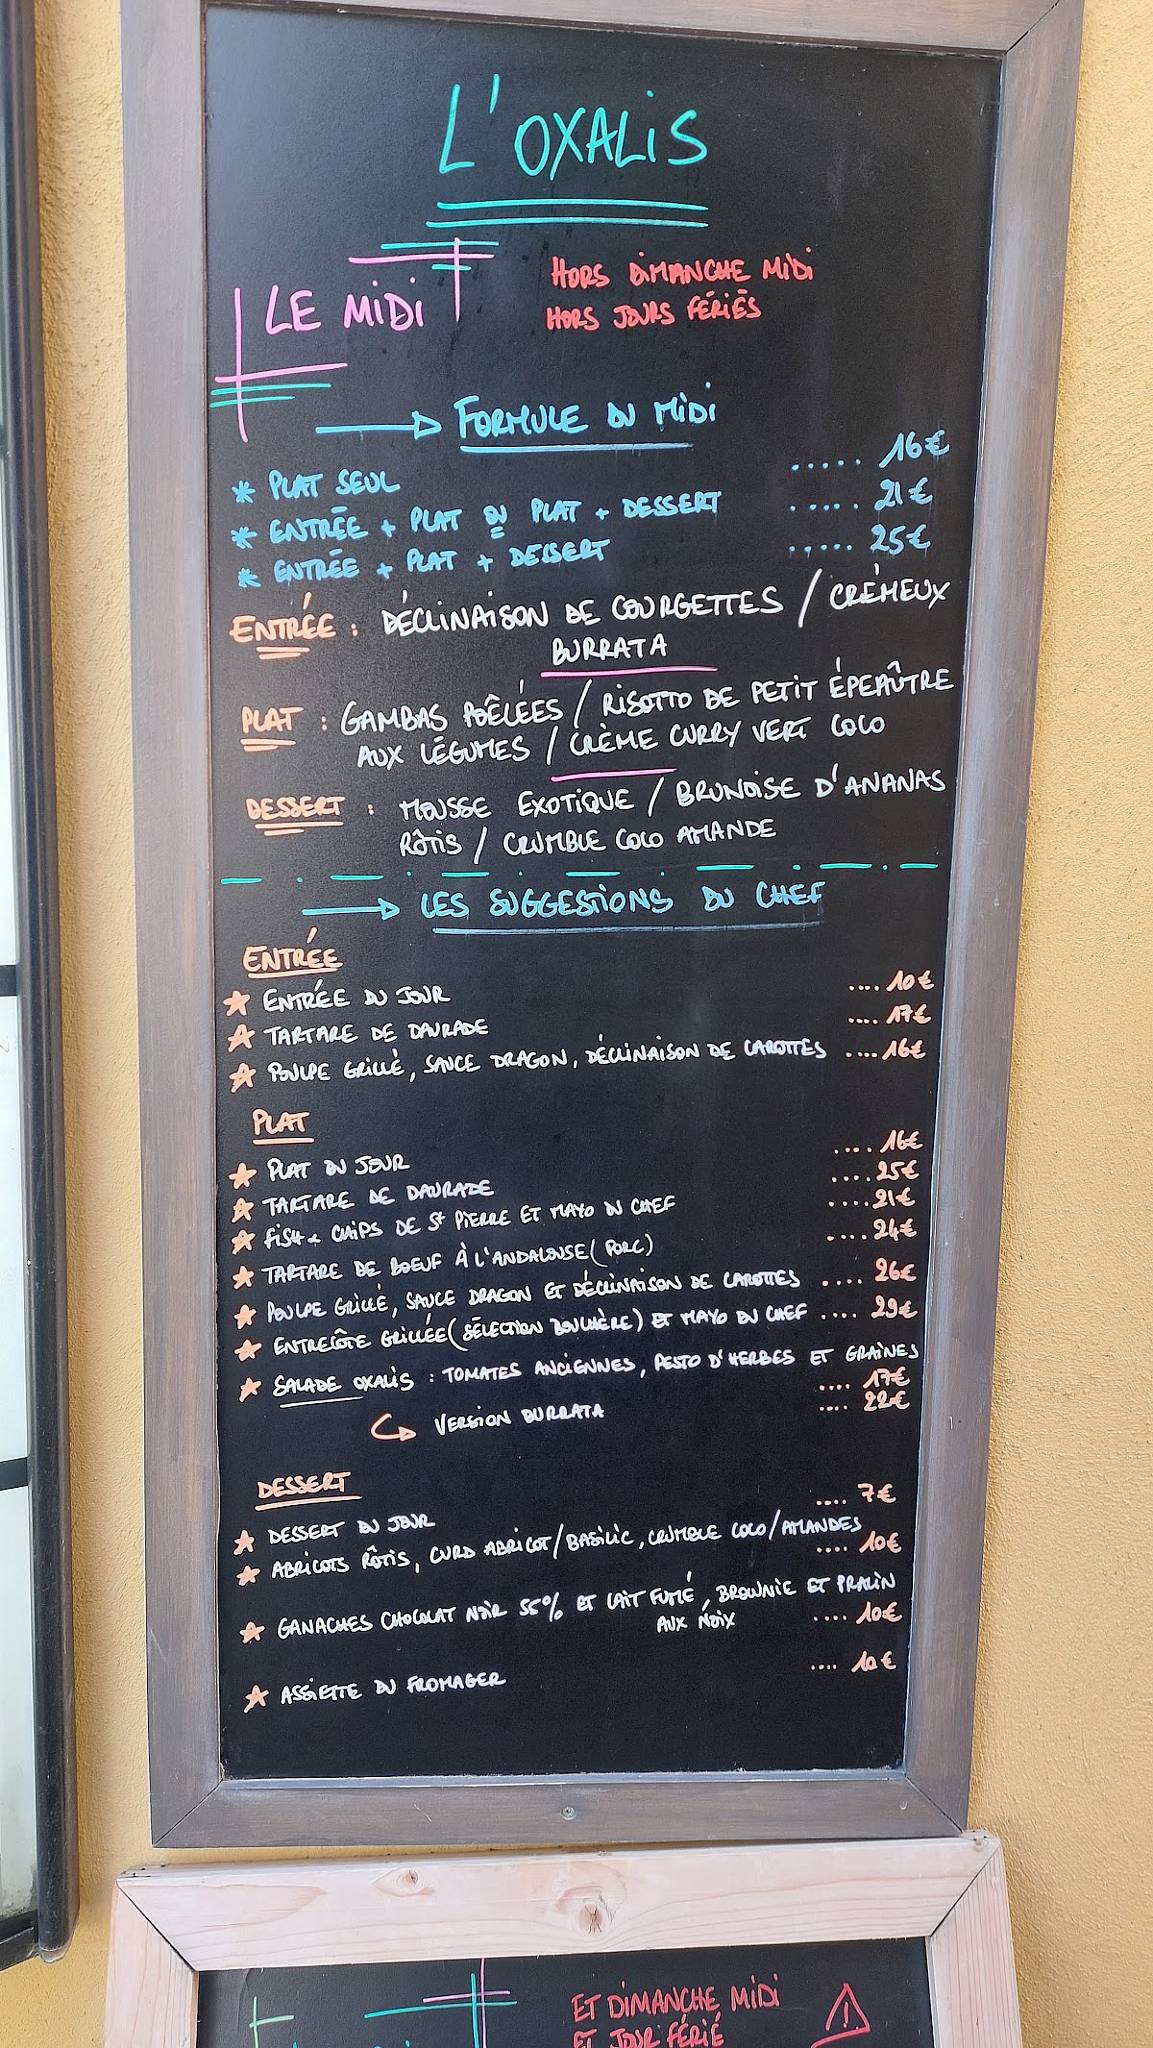 L'OXALIS
LE MIDI
HORS DIMANCHE MIDI
HORS JOURS FÉRIÉS
FORMULE DU MIDI
* PLAT SEUL ..... 16€
* ENTRÉE + PLAT OU PLAT + DESSERT ..... 21€
* ENTRÉE + PLAT + DESSERT ..... 25€
ENTRÉE : DÉCLINAISON DE COURGETTES / CRÉMEUX
BURRATA
PLAT : GAMBAS POÊLÉES / RISOTTO DE PETIT ÉPEAÛTRE
AUX LÉGUMES / CRÈME CURRY VERT COCO
DESSERT : MOUSSE EXOTIQUE / BRUNOISE D'ANANAS
RÔTIS / CRUMBLE COCO AMANDE
LES SUGGESTIONS DU CHEF
ENTRÉE
ENTRÉE DU JOUR .... 10€
TARTARE DE DAURADE .... 17€
POULPE GRILLÉ, SAUCE DRAGON, DÉCLINAISON DE CAROTTES .... 16€
PLAT
PLAT DU JOUR .... 16€
TARTARE DE DAURADE .... 25€
FISH & CHIPS DE St PIERRE ET MAYO DU CHEF .... 21€
TARTARE DE BOEUF À L'ANDALOUSE (PORC) .... 24€
POULPE GRILLÉ, SAUCE DRAGON ET DÉCLINAISON DE CAROTTES .... 26€
ENTRECÔTE GRILLÉE (SÉLECTION BOUCHÈRE) ET MAYO DU CHEF .... 29€
SALADE OXALIS : TOMATES ANCIENNES, PESTO D'HERBES ET GRAINES
.... 17€
VERSION BURRATA .... 22€
DESSERT
DESSERT DU JOUR .... 7€
ABRICOTS RÔTIS, CURD ABRICOT/BASILIC, CRUMBLE COCO/AMANDES
.... 10€
GANACHES CHOCOLAT NOIR 55% ET LAIT FUMÉ, BROWNIE ET PRALIN
AUX NOIX .... 10€
ASSIETTE DU FROMAGER .... 10€
ET DIMANCHE MIDI
ET JOUR FÉRIÉ